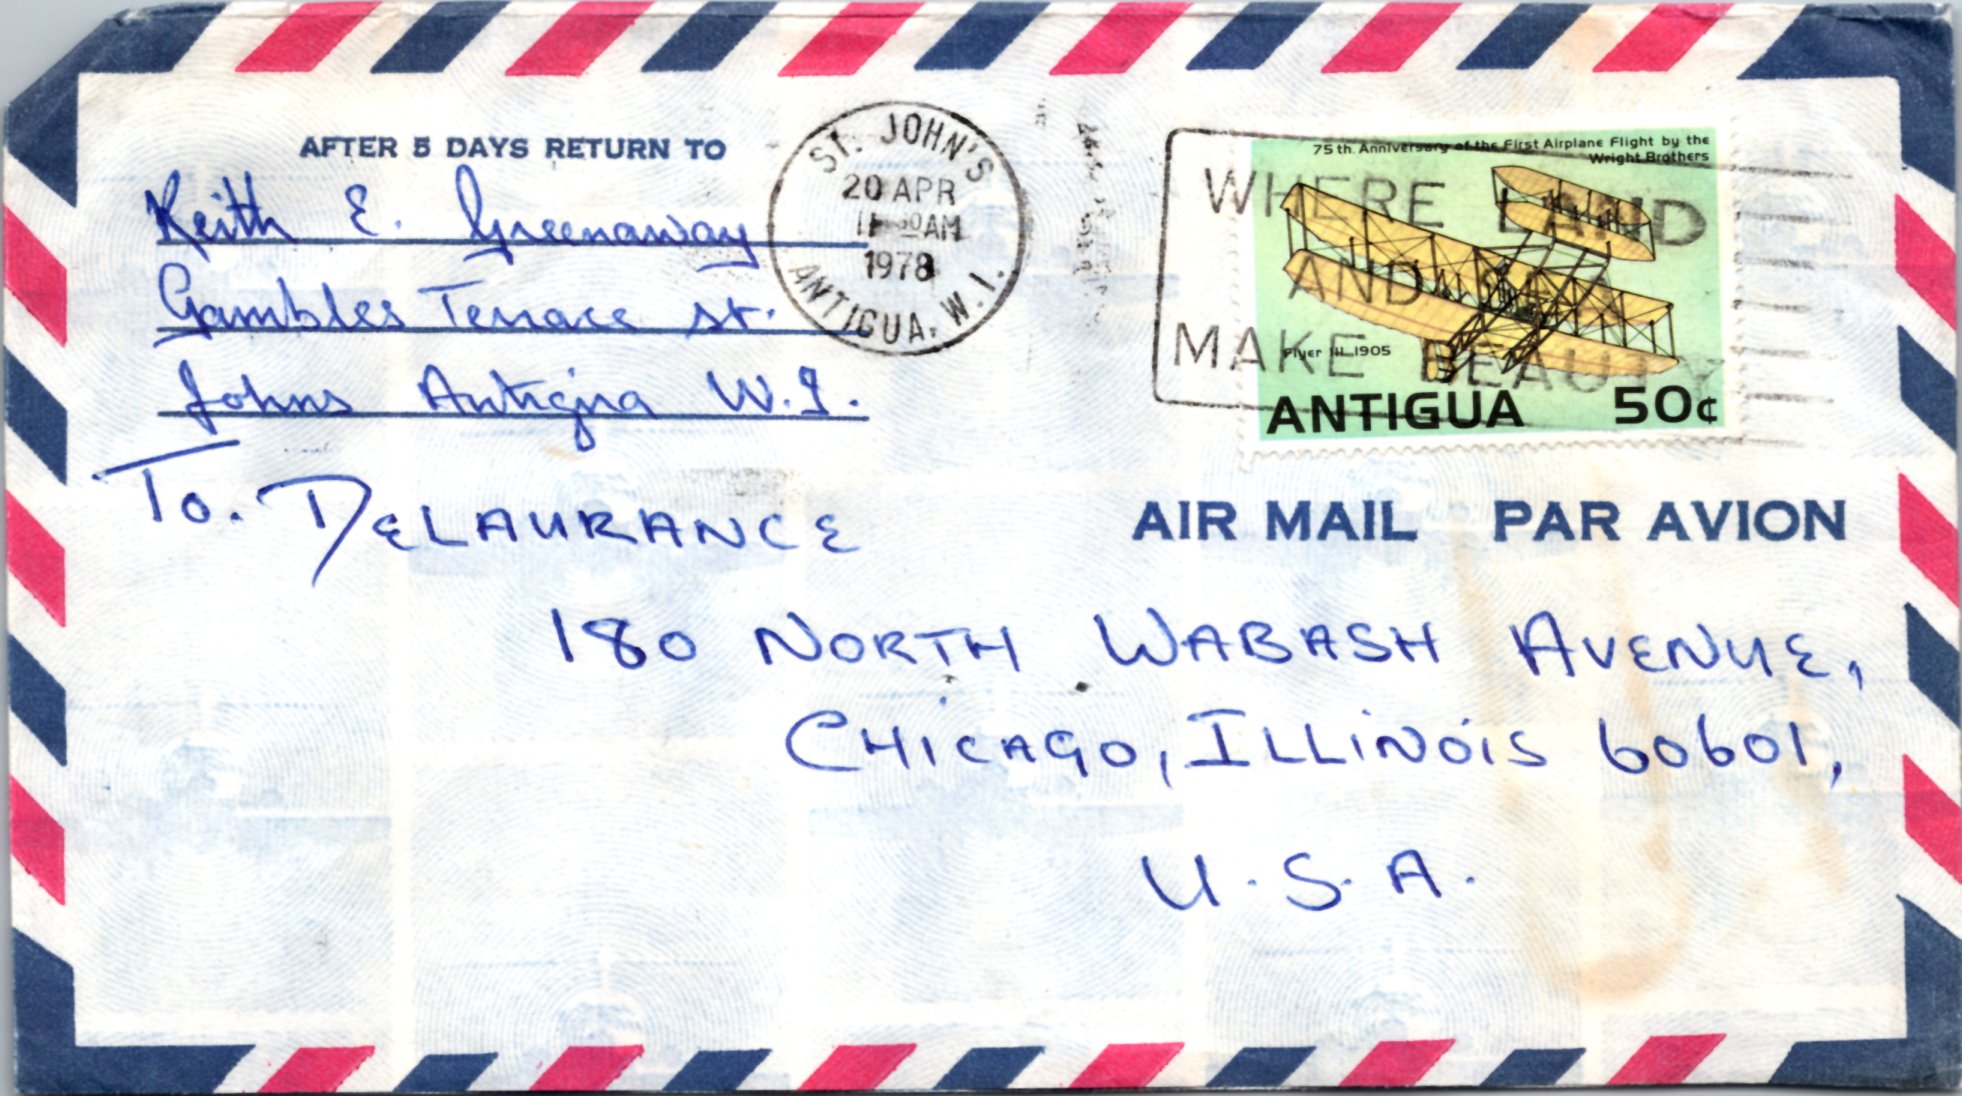 AFTER 5 DAYS RETURN TO
Keith E. Greenaway
Gambles Terrace St.
Johns Antigua W.I.
ST. JOHN'S
20 APR
11 30 AM
1978
ANTIGUA. W.I.
75th. Anniversary of the First Airplane Flight by the
Wright Brothers
WHERE LAND
AND SEA
MAKE BEAUTY
Flyer III. 1905
ANTIGUA 50¢
AIR MAIL PAR AVION
To. DELAURANCE
180 NORTH WABASH AVENUE,
CHICAGO, ILLINOIS 60601,
U.S.A.